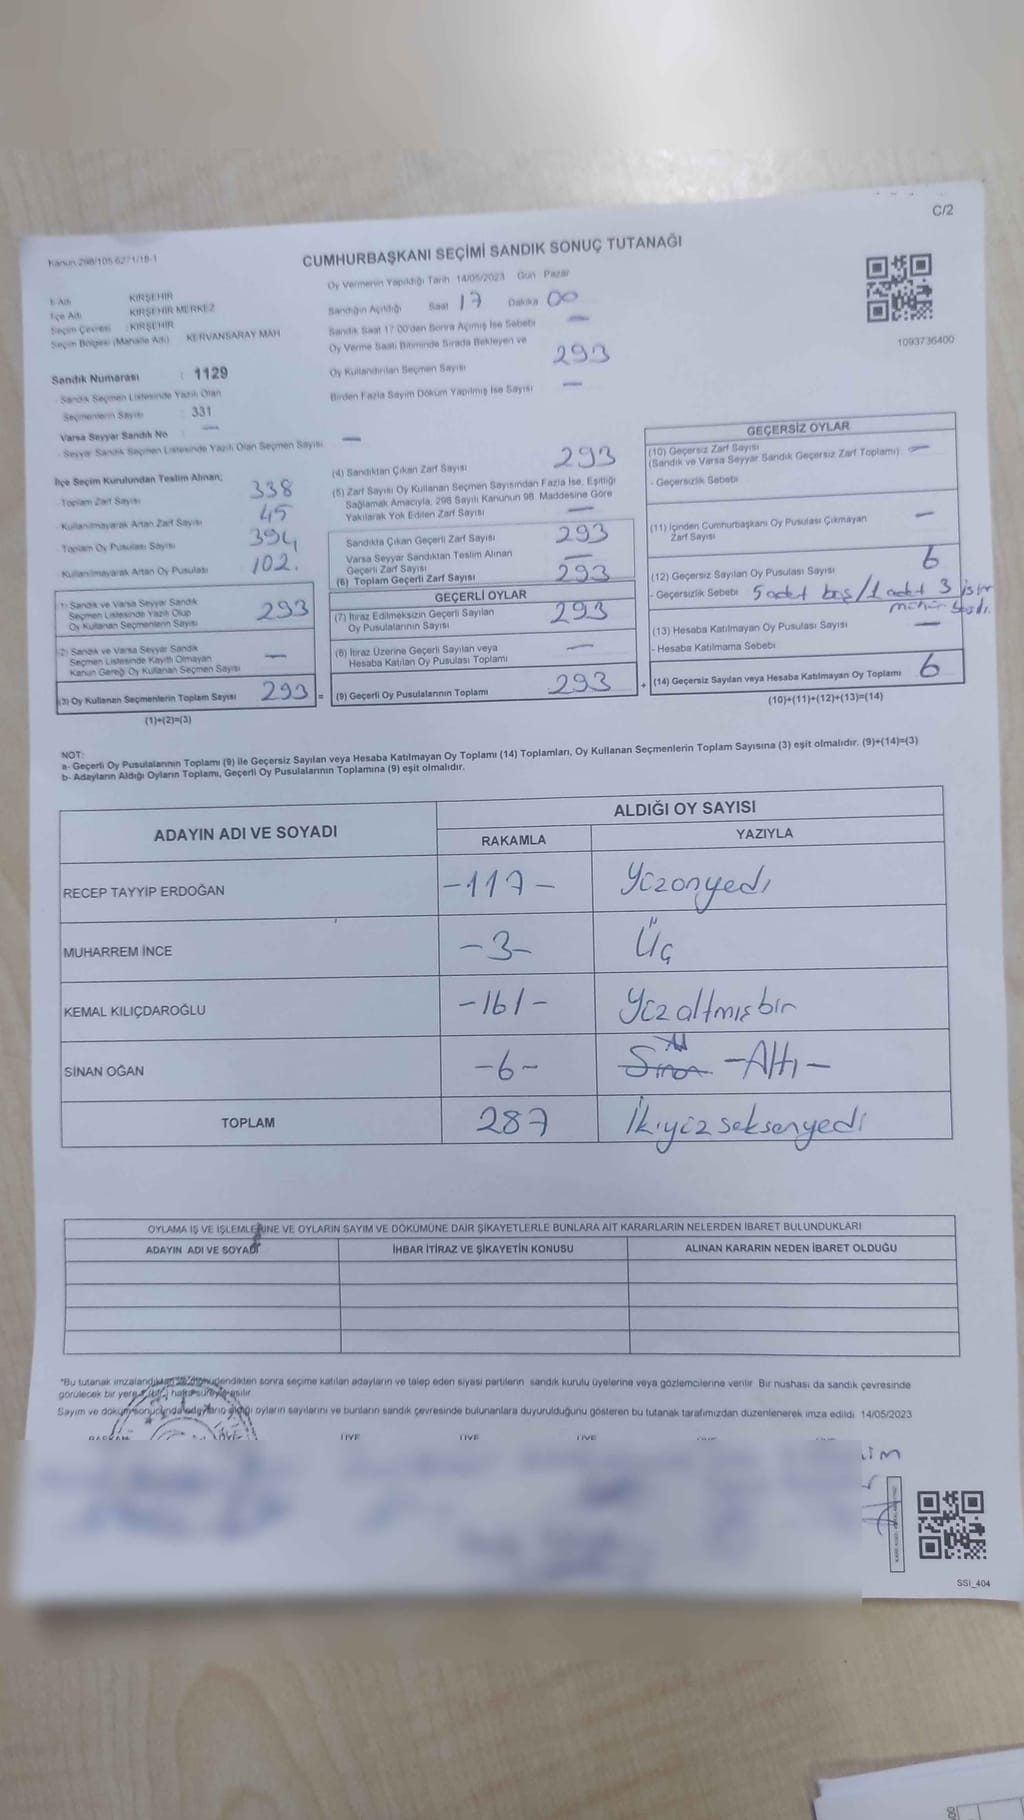 C/2
Kanun 298/105 6271/18-1
CUMHURBAŞKANI SEÇİMİ SANDIK SONUÇ TUTANAĞI
İl Adı KIRŞEHİR
İlçe Adı KIRŞEHİR MERKEZ
Seçim Çevresi : KIRŞEHİR
Seçim Bölgesi (Mahalle Adı) KERVANSARAY MAH
Oy Vermenin Yapıldığı Tarih 14/05/2023 Gün Pazar
Sandığın Açıldığı Saat 17 Dakika 00
Sandık Saat 17:00'den Sonra Açılmış İse Sebebi —
Oy Verme Saati Bitiminde Sırada Bekleyen ve
Oy Kullandırılan Seçmen Sayısı 293
Birden Fazla Sayım Döküm Yapılmış İse Sayısı —
1093736400
Sandık Numarası : 1129
Sandık Seçmen Listesinde Yazılı Olan
Seçmenlerin Sayısı : 331
Varsa Seyyar Sandık No —
Seyyar Sandık Seçmen Listesinde Yazılı Olan Seçmen Sayısı —
İlçe Seçim Kurulundan Teslim Alınan;
Toplam Zarf Sayısı 338
Kullanılmayarak Artan Zarf Sayısı 45
Toplam Oy Pusulası Sayısı 394
Kullanılmayarak Artan Oy Pusulası 102.
(1) Sandık ve Varsa Seyyar Sandık
Seçmen Listesinde Yazılı Olup
Oy Kullanan Seçmenlerin Sayısı 293
(2) Sandık ve Varsa Seyyar Sandık
Seçmen Listesinde Kayıtlı Olmayan
Kanun Gereği Oy Kullanan Seçmen Sayısı —
(3) Oy Kullanan Seçmenlerin Toplam Sayısı 293 =
(1)+(2)=(3)
(4) Sandıktan Çıkan Zarf Sayısı 293
(5) Zarf Sayısı Oy Kullanan Seçmen Sayısından Fazla İse, Eşitliği
Sağlamak Amacıyla, 298 Sayılı Kanunun 98. Maddesine Göre
Yakılarak Yok Edilen Zarf Sayısı —
Sandıkta Çıkan Geçerli Zarf Sayısı 293
Varsa Seyyar Sandıktan Teslim Alınan
Geçerli Zarf Sayısı —
(6) Toplam Geçerli Zarf Sayısı 293
GEÇERLİ OYLAR
(7) İtiraz Edilmeksizin Geçerli Sayılan
Oy Pusulalarının Sayısı 293
(8) İtiraz Üzerine Geçerli Sayılan veya
Hesaba Katılan Oy Pusulası Toplamı —
(9) Geçerli Oy Pusulalarının Toplamı 293 +
GEÇERSİZ OYLAR
(10) Geçersiz Zarf Sayısı
(Sandık ve Varsa Seyyar Sandık Geçersiz Zarf Toplamı) —
- Geçersizlik Sebebi
(11) İçinden Cumhurbaşkanı Oy Pusulası Çıkmayan
Zarf Sayısı —
(12) Geçersiz Sayılan Oy Pusulası Sayısı 6
- Geçersizlik Sebebi 5 adet boş/1 adet 3 isim
mühür basılı.
(13) Hesaba Katılmayan Oy Pusulası Sayısı —
- Hesaba Katılmama Sebebi
(14) Geçersiz Sayılan veya Hesaba Katılmayan Oy Toplamı 6
(10)+(11)+(12)+(13)=(14)
NOT:
a- Geçerli Oy Pusulalarının Toplamı (9) ile Geçersiz Sayılan veya Hesaba Katılmayan Oy Toplamı (14) Toplamları, Oy Kullanan Seçmenlerin Toplam Sayısına (3) eşit olmalıdır. (9)+(14)=(3)
b- Adayların Aldığı Oyların Toplamı, Geçerli Oy Pusulalarının Toplamına (9) eşit olmalıdır.
ADAYIN ADI VE SOYADI
ALDIĞI OY SAYISI
RAKAMLA YAZIYLA
RECEP TAYYİP ERDOĞAN -117- Yüzonyedi
MUHARREM İNCE -3- Üç
KEMAL KILIÇDAROĞLU -161- Yüz altmış bir
SİNAN OĞAN -6- -Altı-
TOPLAM 287 İkiyüz seksenyedi
OYLAMA İŞ VE İŞLEMLERİNE VE OYLARIN SAYIM VE DÖKÜMÜNE DAİR ŞİKAYETLERLE BUNLARA AİT KARARLARIN NELERDEN İBARET BULUNDUKLARI
ADAYIN ADI VE SOYADI İHBAR İTİRAZ VE ŞİKAYETİN KONUSU ALINAN KARARIN NEDEN İBARET OLDUĞU
*Bu tutanak imzalandıktan ve mühürlendikten sonra seçime katılan adayların ve talep eden siyasi partilerin sandık kurulu üyelerine veya gözlemcilerine verilir. Bir nüshası da sandık çevresinde
görülecek bir yere 1 (bir) hafta süreyle asılır.
Sayım ve döküm sonucunda adayların aldığı oyların sayılarını ve bunların sandık çevresinde bulunanlara duyurulduğunu gösteren bu tutanak tarafımızdan düzenlenerek imza edildi. 14/05/2023
BAŞKAN ÜYE ÜYE ÜYE ÜYE
SSİ_404